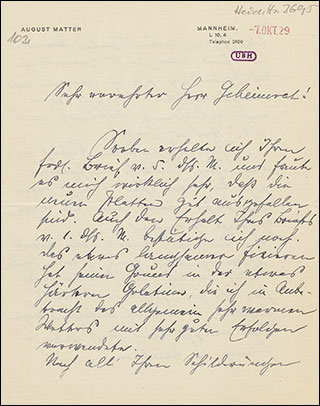 Heid. Hs. 3695
AUGUST MATTER
102
MANNHEIM,
L 10, 4
Telephon 3109
-7.OKT.29
UBH
Sehr verehrter Herr Geheimrat!
Soeben erhalte ich Ihren
frdl. Brief v. 5. ds. M. und freute
es mich wirklich sehr, daß die
neuen Platten gut ausgefallen
sind. Auch den Erhalt Ihres Briefs
v. 1. ds. M. bestätige ich noch.
Das etwas langsamere fixieren
hat seinen Grund in der etwas
härteren Gelatine, die ich in Anbe-
tracht des allgemein sehr warmen
Wetters mit sehr guten Erfolgen
verwendete.
Nach all' Ihren Schilderungen